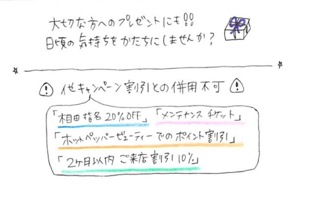 大切な方へのプレゼントにも!!
日頃の気持ちをかたちにしませんか?
他キャンペーン割引との併用不可
「相田指名20%OFF」「メンテナンスチケット」
「ホットペッパービューティーでのポイント割引」
「2ヶ月以内ご来店割引10%」